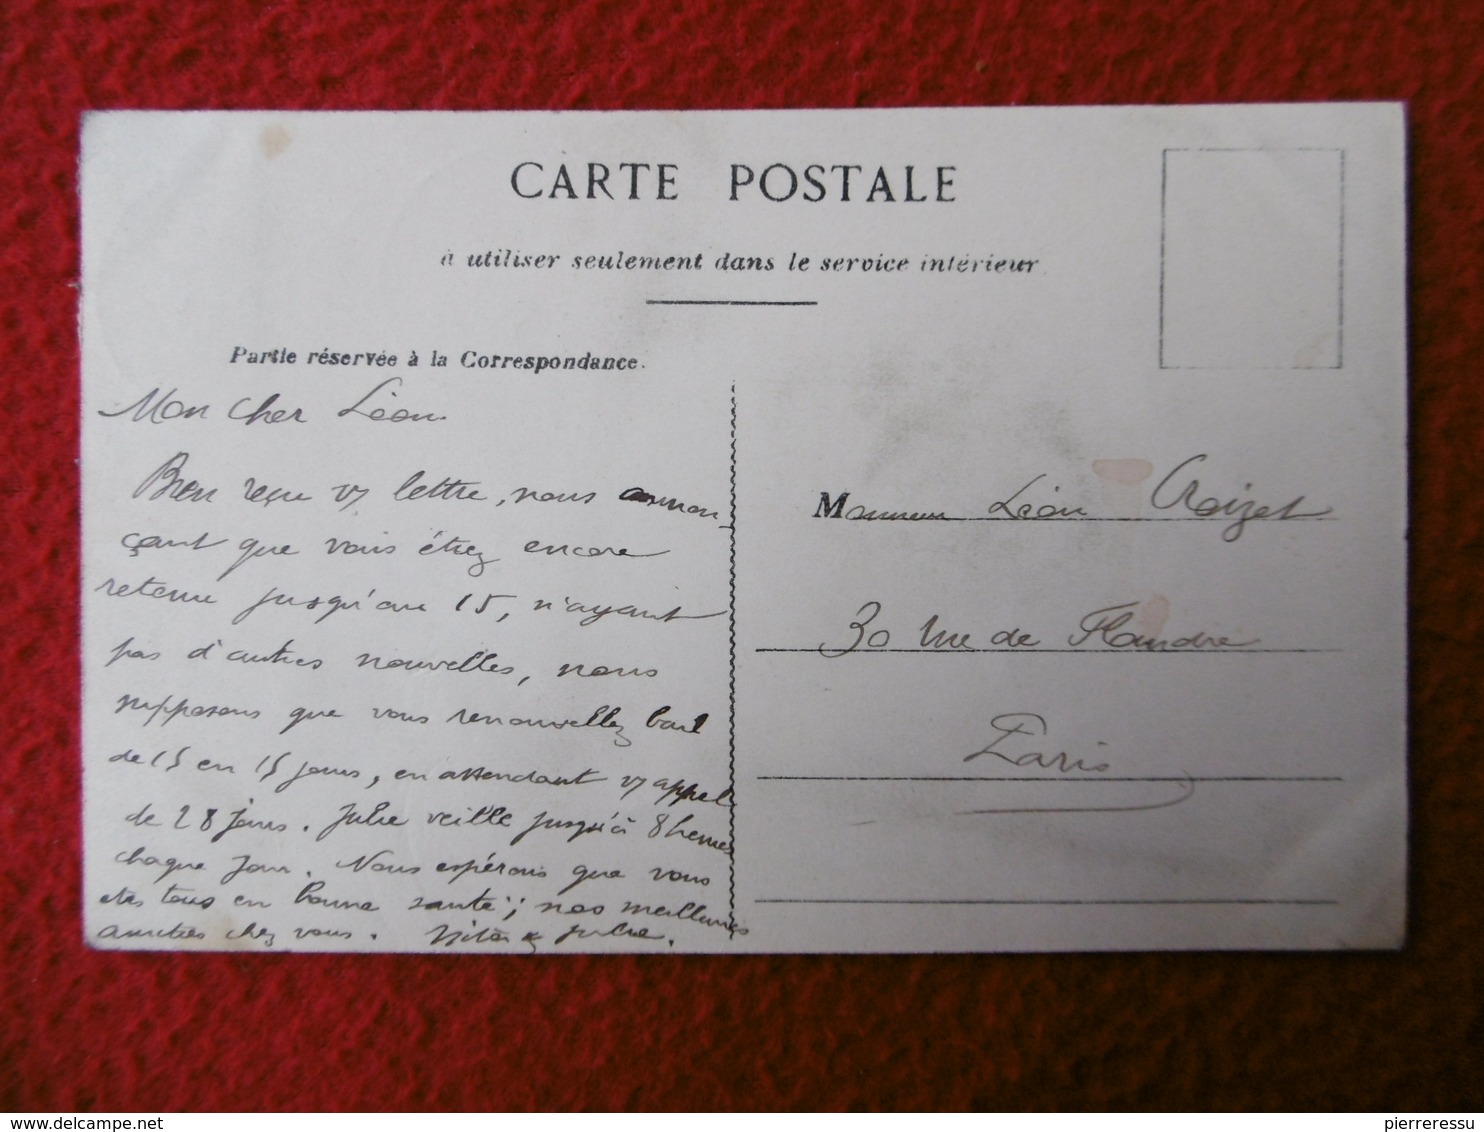 CARTE POSTALE
à utiliser seulement dans le service intérieur
Partie réservée à la Correspondance.
Mon cher Léon.
Bien reçu v/ lettre, nous annon-
çant que vous étiez encore
retenu jusqu'au 15, n'ayant
pas d'autres nouvelles, nous
supposons que vous renouvellez bail
de 15 en 15 jours, en attendant v/ appel
de 28 jours. Julie veille jusqu'à 8 heures
chaque jour. Nous espérons que vous
etes tous en bonne santé; nos meilleures
amitiés chez vous. & Julie.
Monsieur Léon Croizet
30 rue de Flandre
Paris
pierreressu